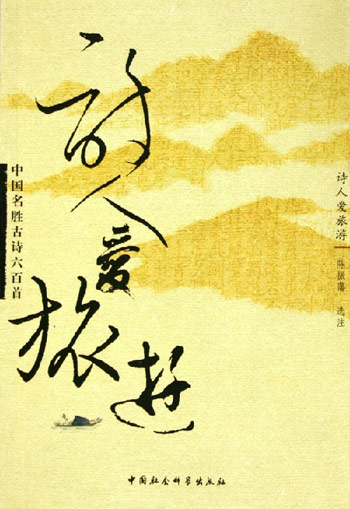 诗人爱旅游
中国名胜古诗六百首
诗人爱旅游
陈振藩 选注
中国社会科学出版社